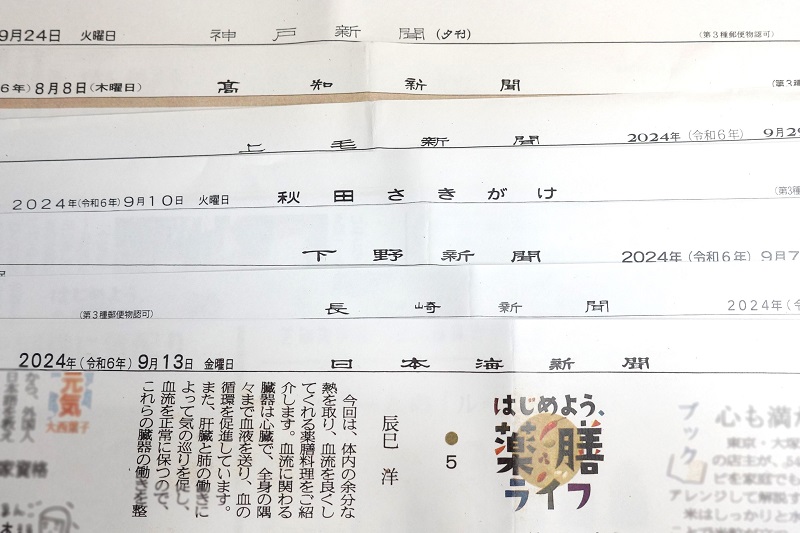 9月24日 火曜日 神戸新聞(夕刊) (第3種郵便物認可)
6年)8月8日(木曜日) 高知新聞 (第3種
上毛新聞 2024年(令和6年) 9月2
2024年(令和6年)9月10日 火曜日 秋田さきがけ (第3種
下野新聞 2024年(令和6年) 9月7
(第3種郵便物認可) 長崎新聞 2024年(令
2024年(令和6年)9月13日 金曜日 日本海新聞
はじめよう、
薬膳
ライフ
5
辰巳 洋
今回は、体内の余分な
熱を取り、血流を良くし
てくれる薬膳料理をご紹
介します。血流に関わる
臓器は心臓で、全身の隅
々まで血液を送り、血の
循環を促進しています。
また、肝臓と肺の働きに
よって気の巡りを促し、
血流を正常に保つので、
これらの臓器の働きを整
心も満
ブック
東京・大塚
の店主が、ふ
ピを家庭でも
アレンジして解説す
米はしっかりと水
元気
大西葉子
から、外国人
日本語を教え
家資格